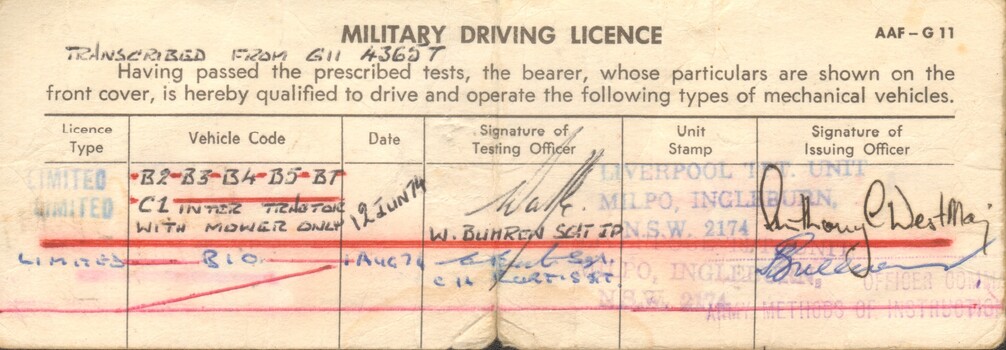 MILITARY DRIVING LICENCE
AAF-G11
TRANSCRIBED FROM G11 43657
Having passed the prescribed tests, the bearer, whose particulars are shown on the
front cover, is hereby qualified to drive and operate the following types of mechanical vehicles.
Licence Type
Vehicle Code
Date
Signature of Testing Officer
Unit Stamp
Signature of Issuing Officer
LIMITED
B2-B3-B4-B5-BT
LIMITED
C2 INTER TRACTOR
WITH MOWER ONLY
12 JUN 74
W. BUHREN SGT
LIVERPOOL UNIT
MILPO, INGLEBURN,
N.S.W. 2174
Anthony C West Maj
LIMITED
B10
1 AUG 74
UNIT
MILPO, INGLEBURN,
N.S.W. 2174
OFFICER
ARMY METHODS OF INSTRUCTION